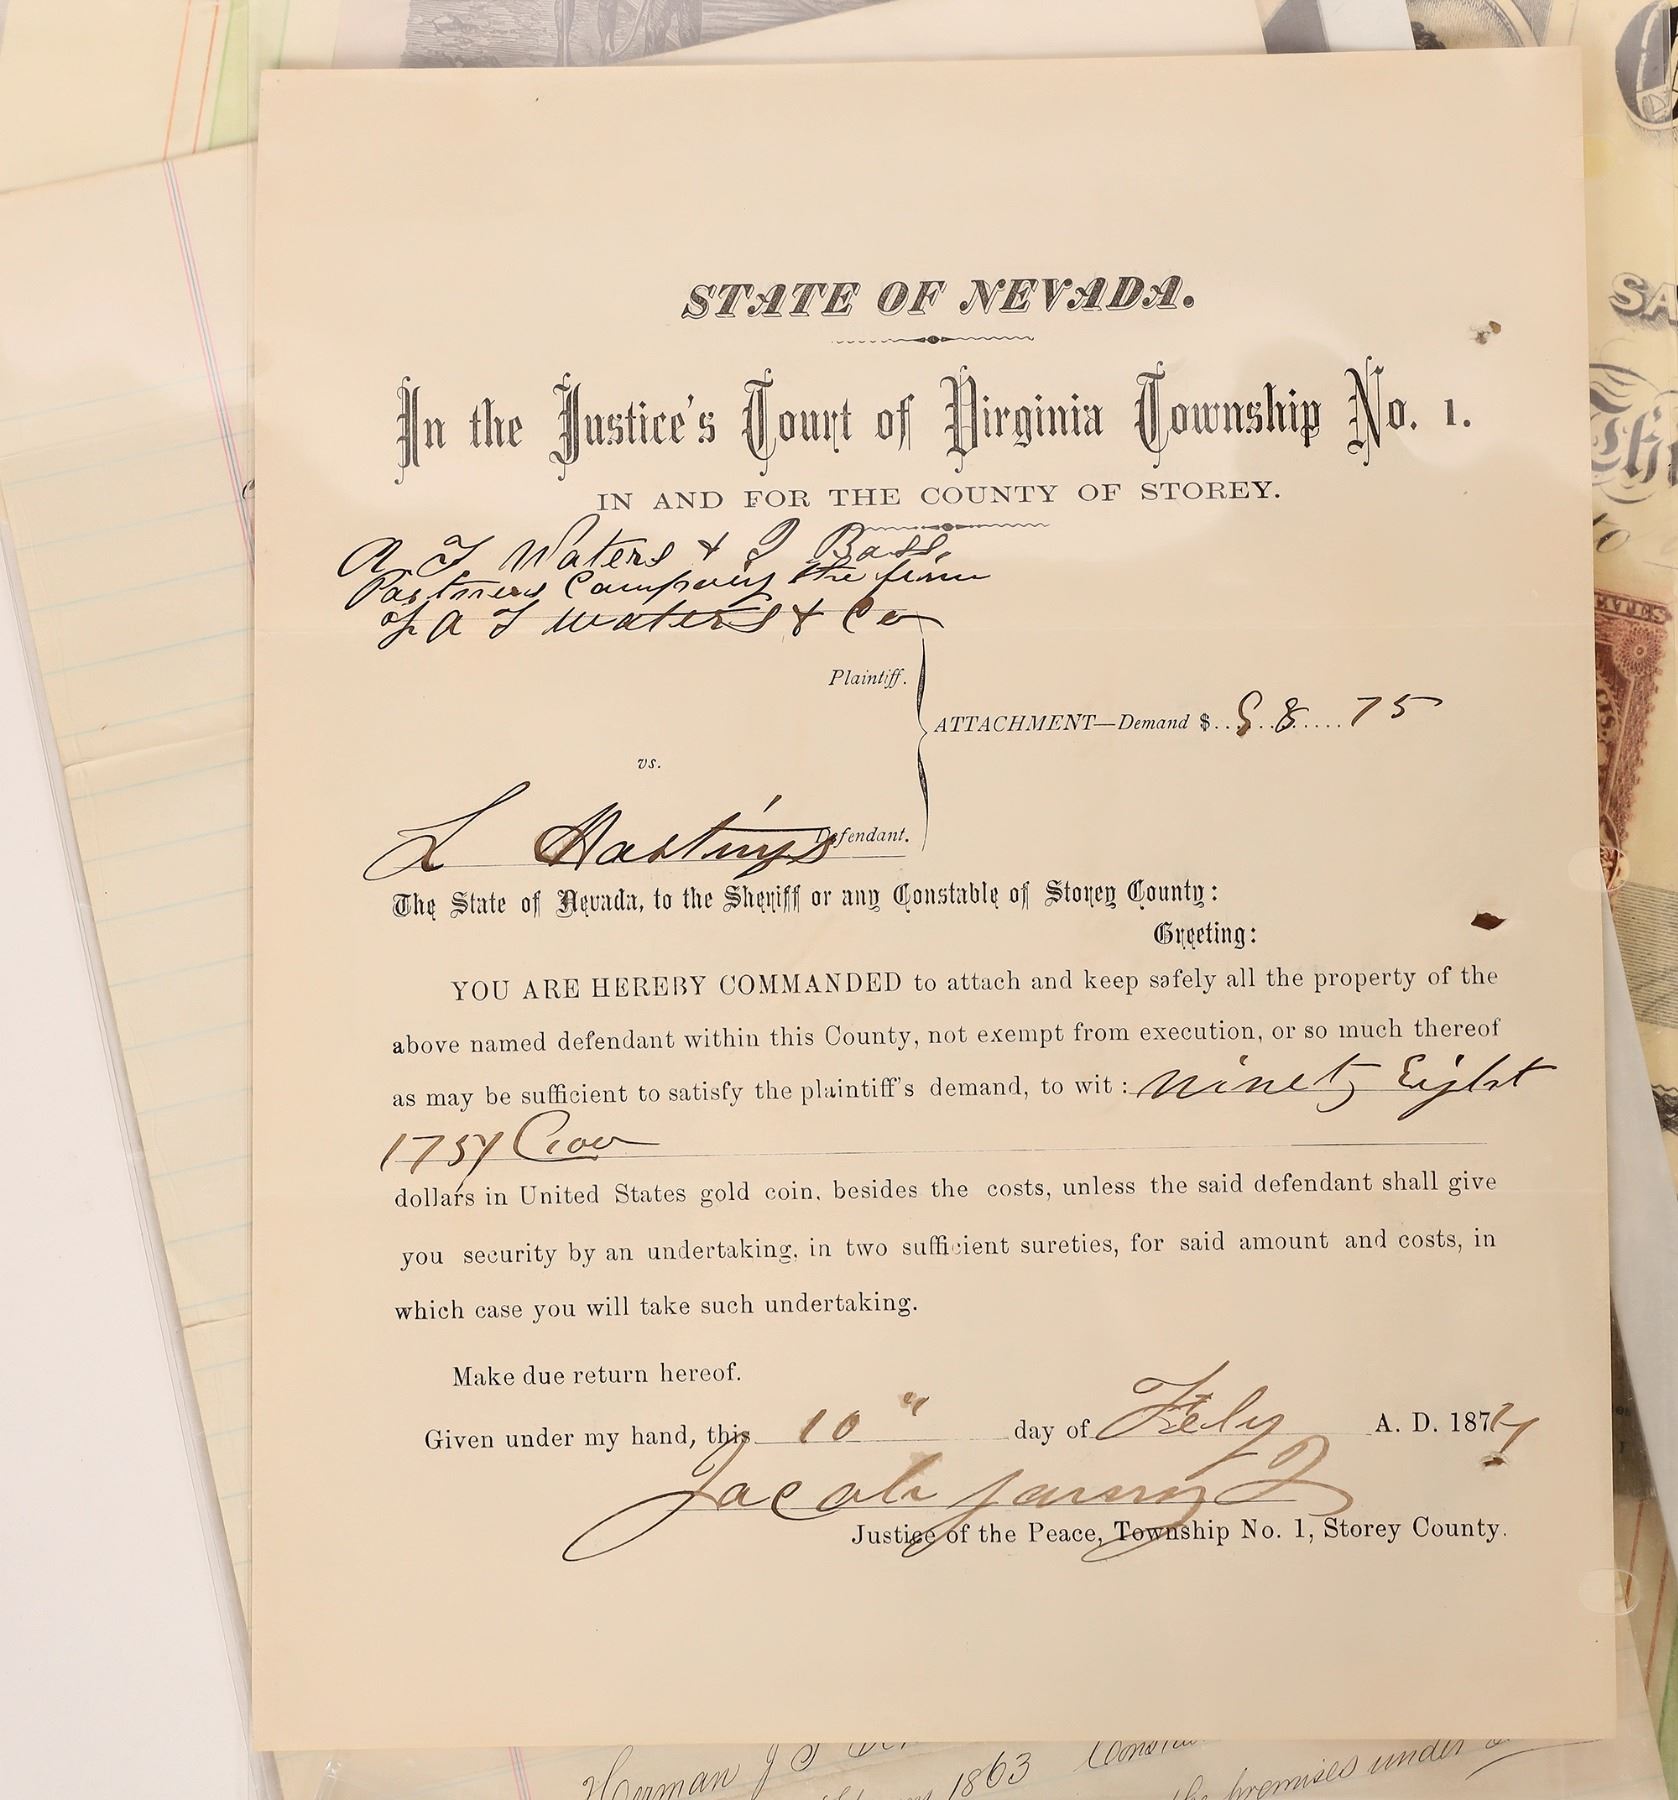 STATE OF NEVADA.
In the Justice's Court of Virginia Township No. 1.
IN AND FOR THE COUNTY OF STOREY.
A T Waters & J Bass,
Partners Company the firm
of A T Waters & Co
Plaintiff.
ATTACHMENT—Demand $ 98 75
vs.
L Hastings
Defendant.
The State of Nevada, to the Sheriff or any Constable of Storey County:
Greeting:
YOU ARE HEREBY COMMANDED to attach and keep safely all the property of the
above named defendant within this County, not exempt from execution, or so much thereof
as may be sufficient to satisfy the plaintiff's demand, to wit: Ninety Eight
dollars in United States gold coin, besides the costs, unless the said defendant shall give
you security by an undertaking, in two sufficient sureties, for said amount and costs, in
which case you will take such undertaking.
Make due return hereof.
Given under my hand, this 10" day of Feby A. D. 187
Jacob
Justice of the Peace, Township No. 1, Storey County.
Herman J
1863
the premises under
SA
to